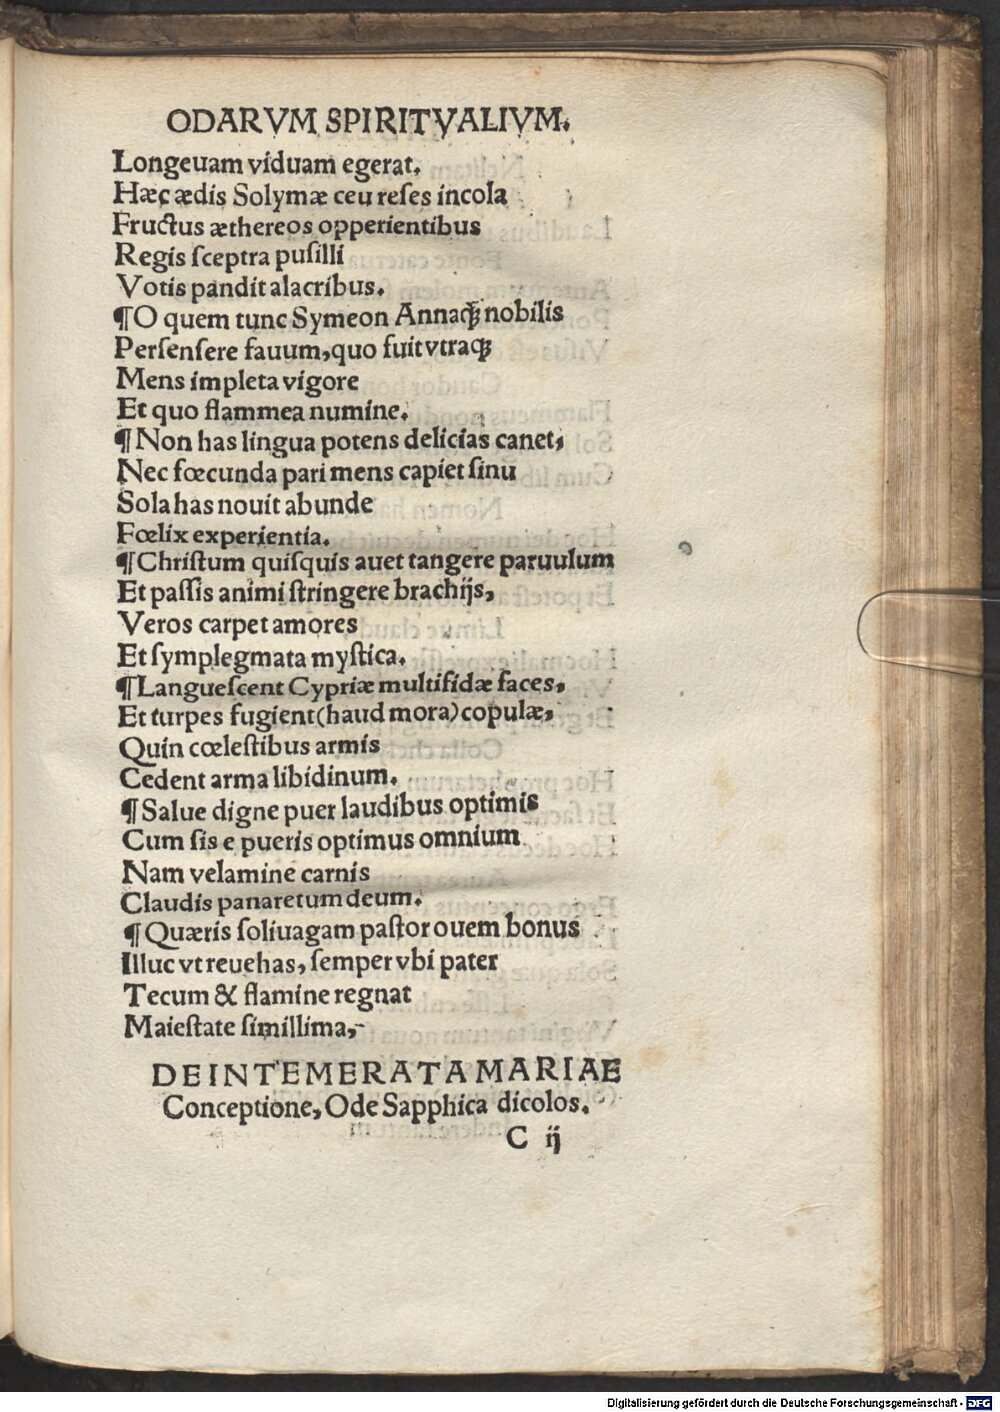 ODARVM SPIRITVALIVM.
Longeuam viduam egerat.
Hæc ædis Solymæ ceu reſes incola
Fructus æthereos opperientibus
Regis ſceptra puſilli
Votis pandit alacribus.
¶O quem tunc Symeon Annaqꝫ nobilis
Perſenſere fauum, quo fuit vtraqꝫ
Mens impleta vigore
Et quo flammea numine.
¶Non has lingua potens delicias canet,
Nec fœcunda pari mens capiet ſinu
Sola has nouit abunde
Fœlix experientia.
¶Chriſtum quiſquis auet tangere paruulum
Et paſſis animi ſtringere brachijs,
Veros carpet amores
Et ſymplegmata myſtica.
¶Langueſcent Cypriæ multifidæ faces,
Et turpes fugient (haud mora) copulæ,
Quin cœleſtibus armis
Cedent arma libidinum.
¶Salue digne puer laudibus optimis
Cum ſis e pueris optimus omnium
Nam velamine carnis
Claudis panaretum deum.
¶Quæris ſoliuagam paſtor ouem bonus
Illuc vt reuehas, ſemper vbi pater
Tecum & flamine regnat
Maieſtate ſimillima,-
DE INTEMERATA MARIAE
Conceptione, Ode Sapphica dicolos.
C ij
Digitalisierung gefördert durch die Deutsche Forschungsgemeinschaft - DFG